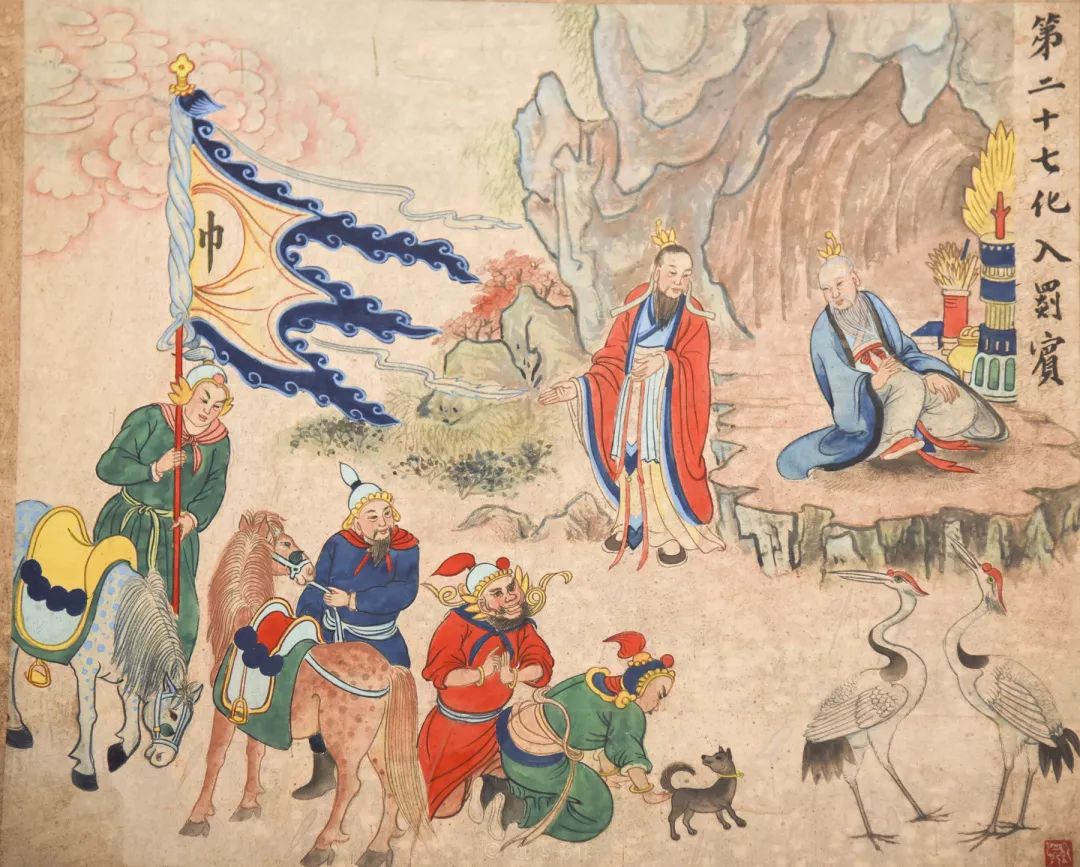 第二十七化入罽賓
巾